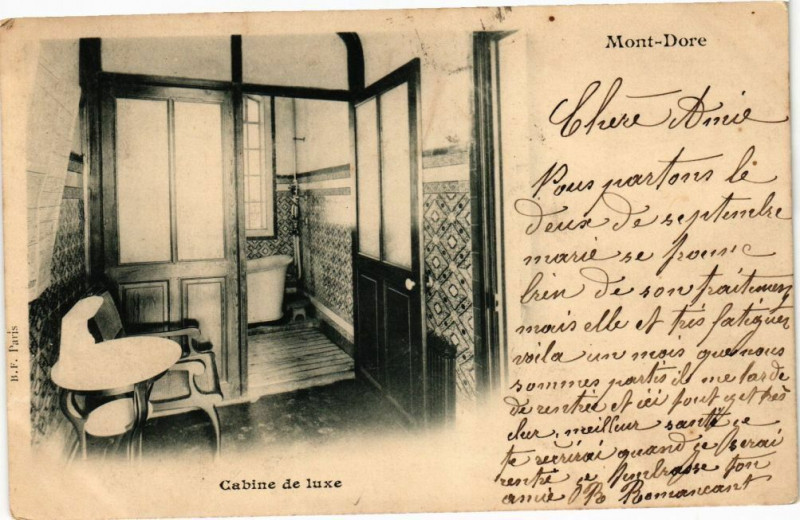 Mont-Dore
Chère Amie
Nous partons le
deux de septembre
marie se trouve
bien de son traitement
mais elle et très fatiguée
voila un mois que nous
sommes partis il me tarde
de rentré et ici tout et très
cher, meilleur santé je
te récrirai quand je serai
rentré je t'embrasse ton
amie B Romancant
B.F. Paris
Cabine de luxe